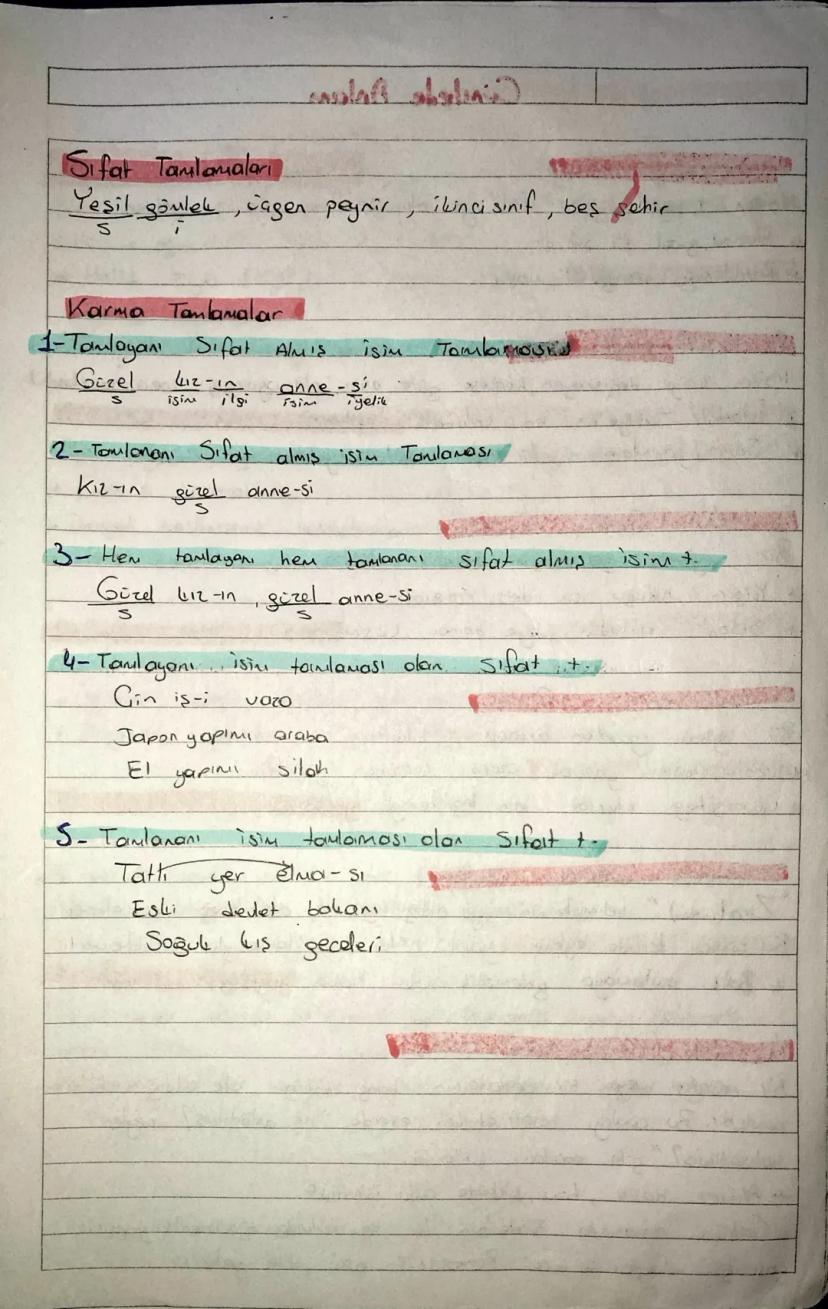 Sıfat Tamlamaları
Yeşil gömlek, üçgen peynir, ikinci sınıf, beş şehir
S i
Karma Tamlamalar
1-Tamlayanı Sıfat Almış isim Tamlaması
Güzel kız-ın anne-si
S isim ilgi isim iyelik
2- Tamlananı Sıfat almış isim Tamlaması
Kız-ın güzel anne-si
S
3- Hem tamlayanı hem tamlananı sıfat almış isim t.
Güzel kız-ın, güzel anne-si
S S
4- Tamlayanı isim tamlaması olan Sıfat t.
Çin iş-i vazo
Japon yapımı araba
El yapımı silah
5- Tamlananı isim tamlaması olan Sıfat t.
Tatlı yer elma-sı
Eski devlet bakanı
Soğuk kış geceleri